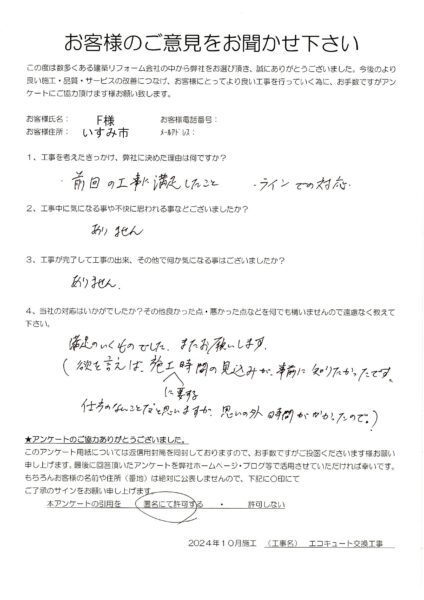 お客様のご意見をお聞かせ下さい
この度は数多くある建築リフォーム会社の中から弊社をお選び頂き、誠にありがとうございました。今後のより
良い施工・品質・サービスの改善につなげ、お客様にとってより良い工事を行っていく為に、お手数ですがアン
ケートにご協力頂けます様お願い致します。
お客様氏名： F様 お客様電話番号：
お客様住所： いすみ市 ﾒｰﾙｱﾄﾞﾚｽ：
1、工事を考えたきっかけ、弊社に決めた理由は何ですか？
・前回の工事に満足したこと ・ラインでの対応
2、工事中に気になる事や不快に思われる事などございましたか？
ありません
3、工事が完了して工事の出来、その他で何か気になる事はございましたか？
ありません.
4、当社の対応はいかがでしたか？その他良かった点・悪かった点などを何でも構いませんので遠慮なく教えて
下さい。
満足のいくものでした. またお願いします.
(欲を言えば、施工時間の見込みが、事前に知りたかったです。
に要する
仕方のないことだと思いますが、思いの外時間がかかったので。)
★アンケートのご協力ありがとうございました。
このアンケート用紙については返信用封筒を同封しておりますので、お手数ですがご投函くださいます様お願い
申し上げます。最後に回答頂いたアンケートを弊社ホームページ・ブログ等で活用させていただければ幸いです。
もちろんお客様の名前や住所（番地）は絶対に公表しませんので、下記に〇印にて
ご了承のサインをお願い申し上げます。
本アンケートの引用を 匿名にて許可する ・ 許可しない
2024年10月施工 （工事名） エコキュート交換工事